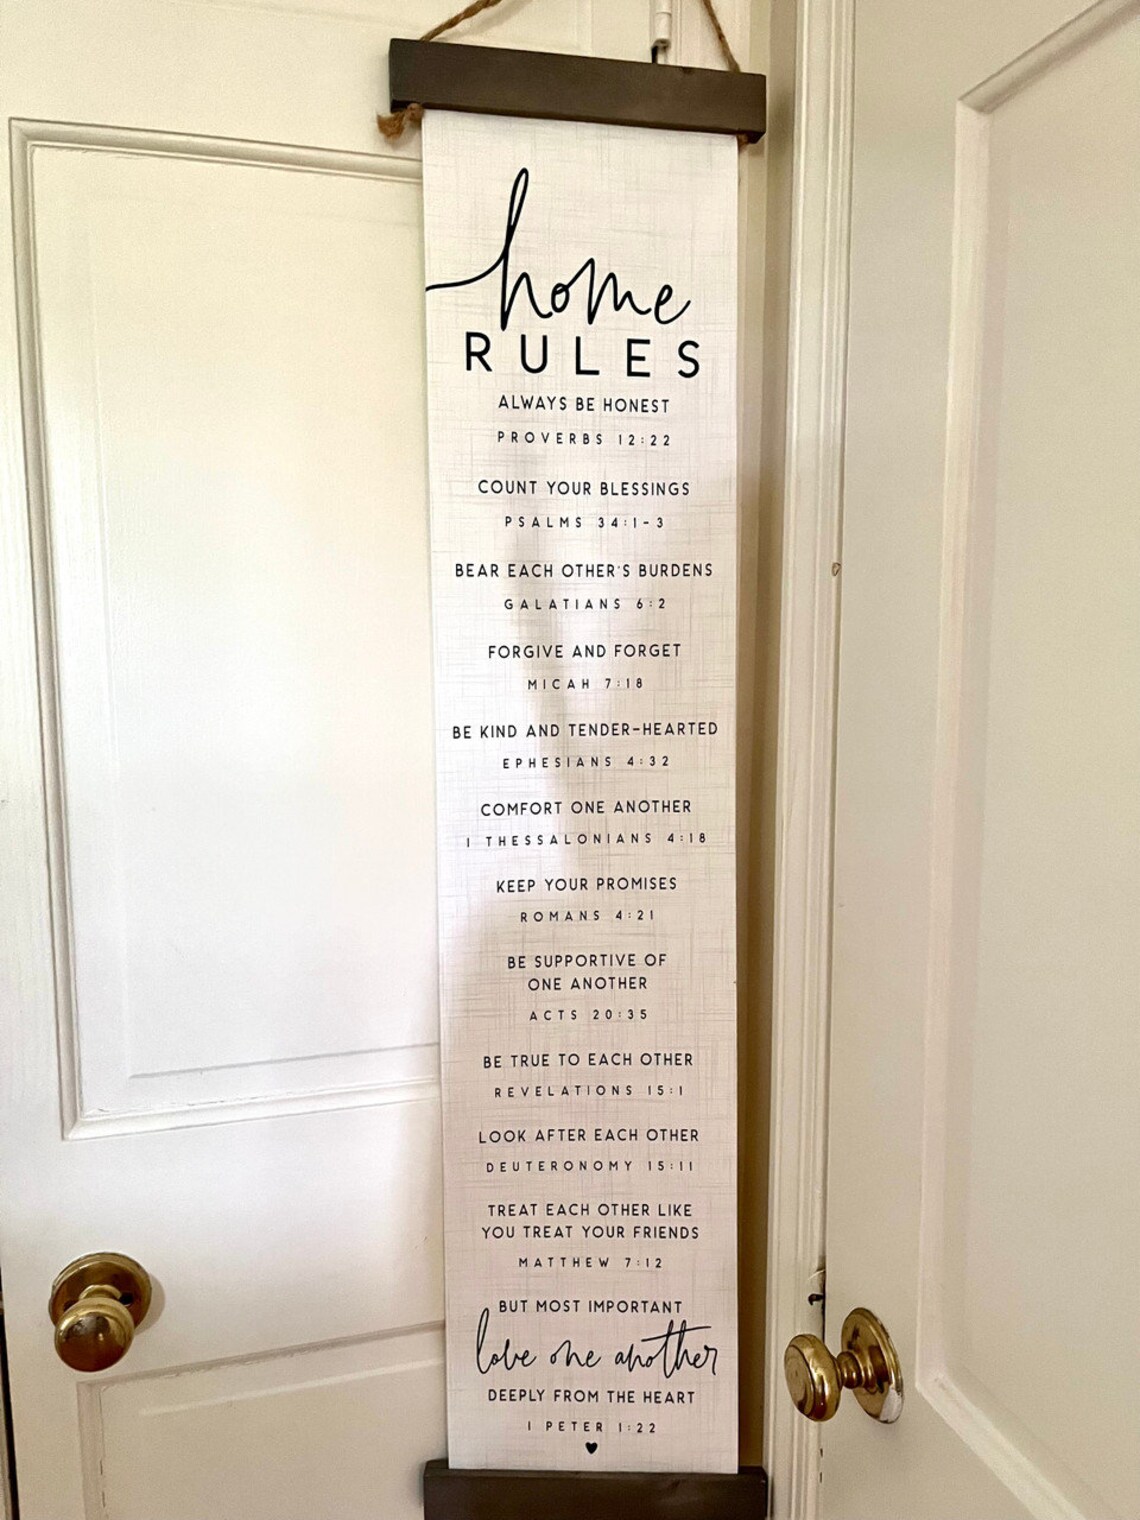 home
RULES
ALWAYS BE HONEST
PROVERBS 12:22
COUNT YOUR BLESSINGS
PSALMS 34:1-3
BEAR EACH OTHER'S BURDENS
GALATIANS 6:2
FORGIVE AND FORGET
MICAH 7:18
BE KIND AND TENDER-HEARTED
EPHESIANS 4:32
COMFORT ONE ANOTHER
1 THESSALONIANS 4:18
KEEP YOUR PROMISES
ROMANS 4:21
BE SUPPORTIVE OF
ONE ANOTHER
ACTS 20:35
BE TRUE TO EACH OTHER
REVELATIONS 15:1
LOOK AFTER EACH OTHER
DEUTERONOMY 15:11
TREAT EACH OTHER LIKE
YOU TREAT YOUR FRIENDS
MATTHEW 7:12
BUT MOST IMPORTANT
love one another
DEEPLY FROM THE HEART
1 PETER 1:22